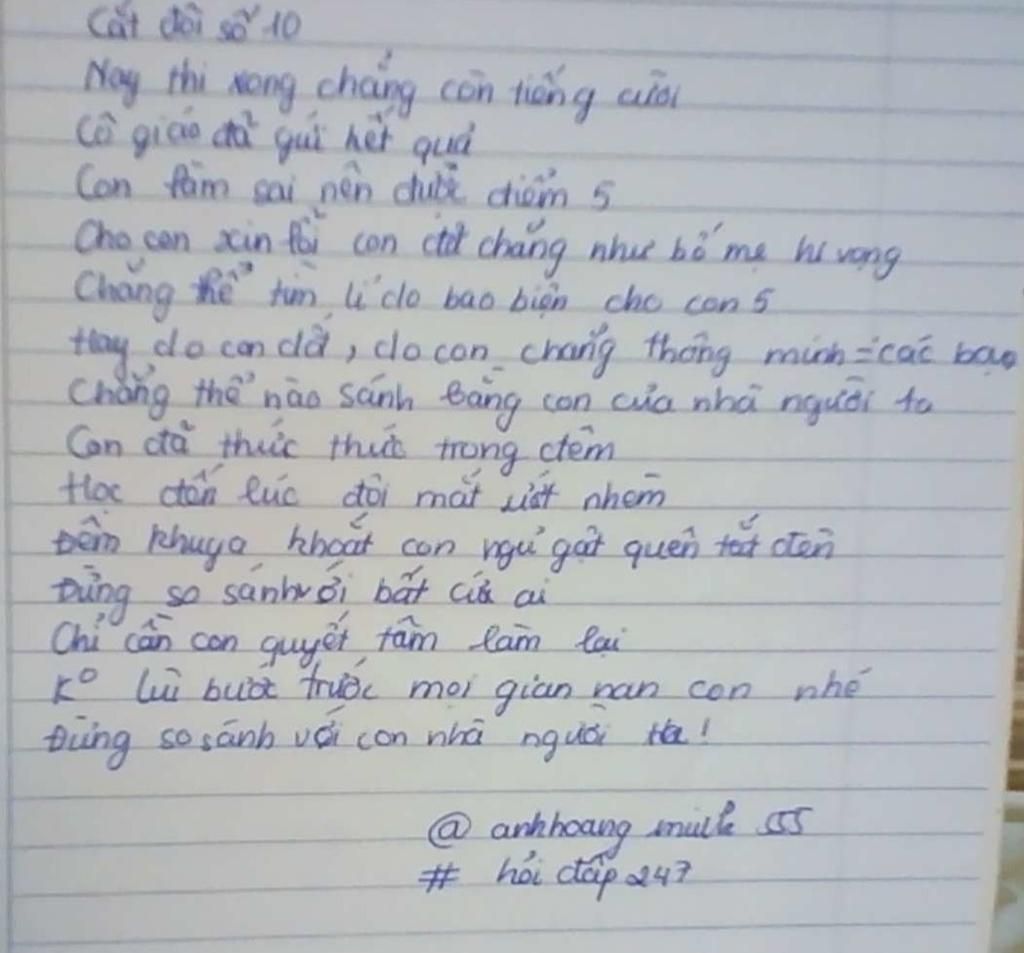 Cắt đôi số 10
Nay thi xong chẳng còn tiếng cười
Cô giáo đã gửi kết quả
Con làm sai nên được điểm 5
Cho con xin lỗi con đạt chẳng như bố mẹ hi vọng
Chẳng thể tìm lí do bao biện cho con 5
Hay do con dở, do con chẳng thông minh = các bạn
Chẳng thể nào sánh bằng con của nhà người ta
Con đã thức thức trong đêm
Học đến lúc đôi mắt ướt nhèm
Đêm khuya khoắt con ngủ gật quên tắt đèn
Đừng so sánh với bất cứ ai
Chỉ cần con quyết tâm làm lại
K° lùi bước trước mọi gian nan con nhé
Đừng so sánh với con nhà người ta!
@ anhhoang milk 555
# hỏi đáp 247